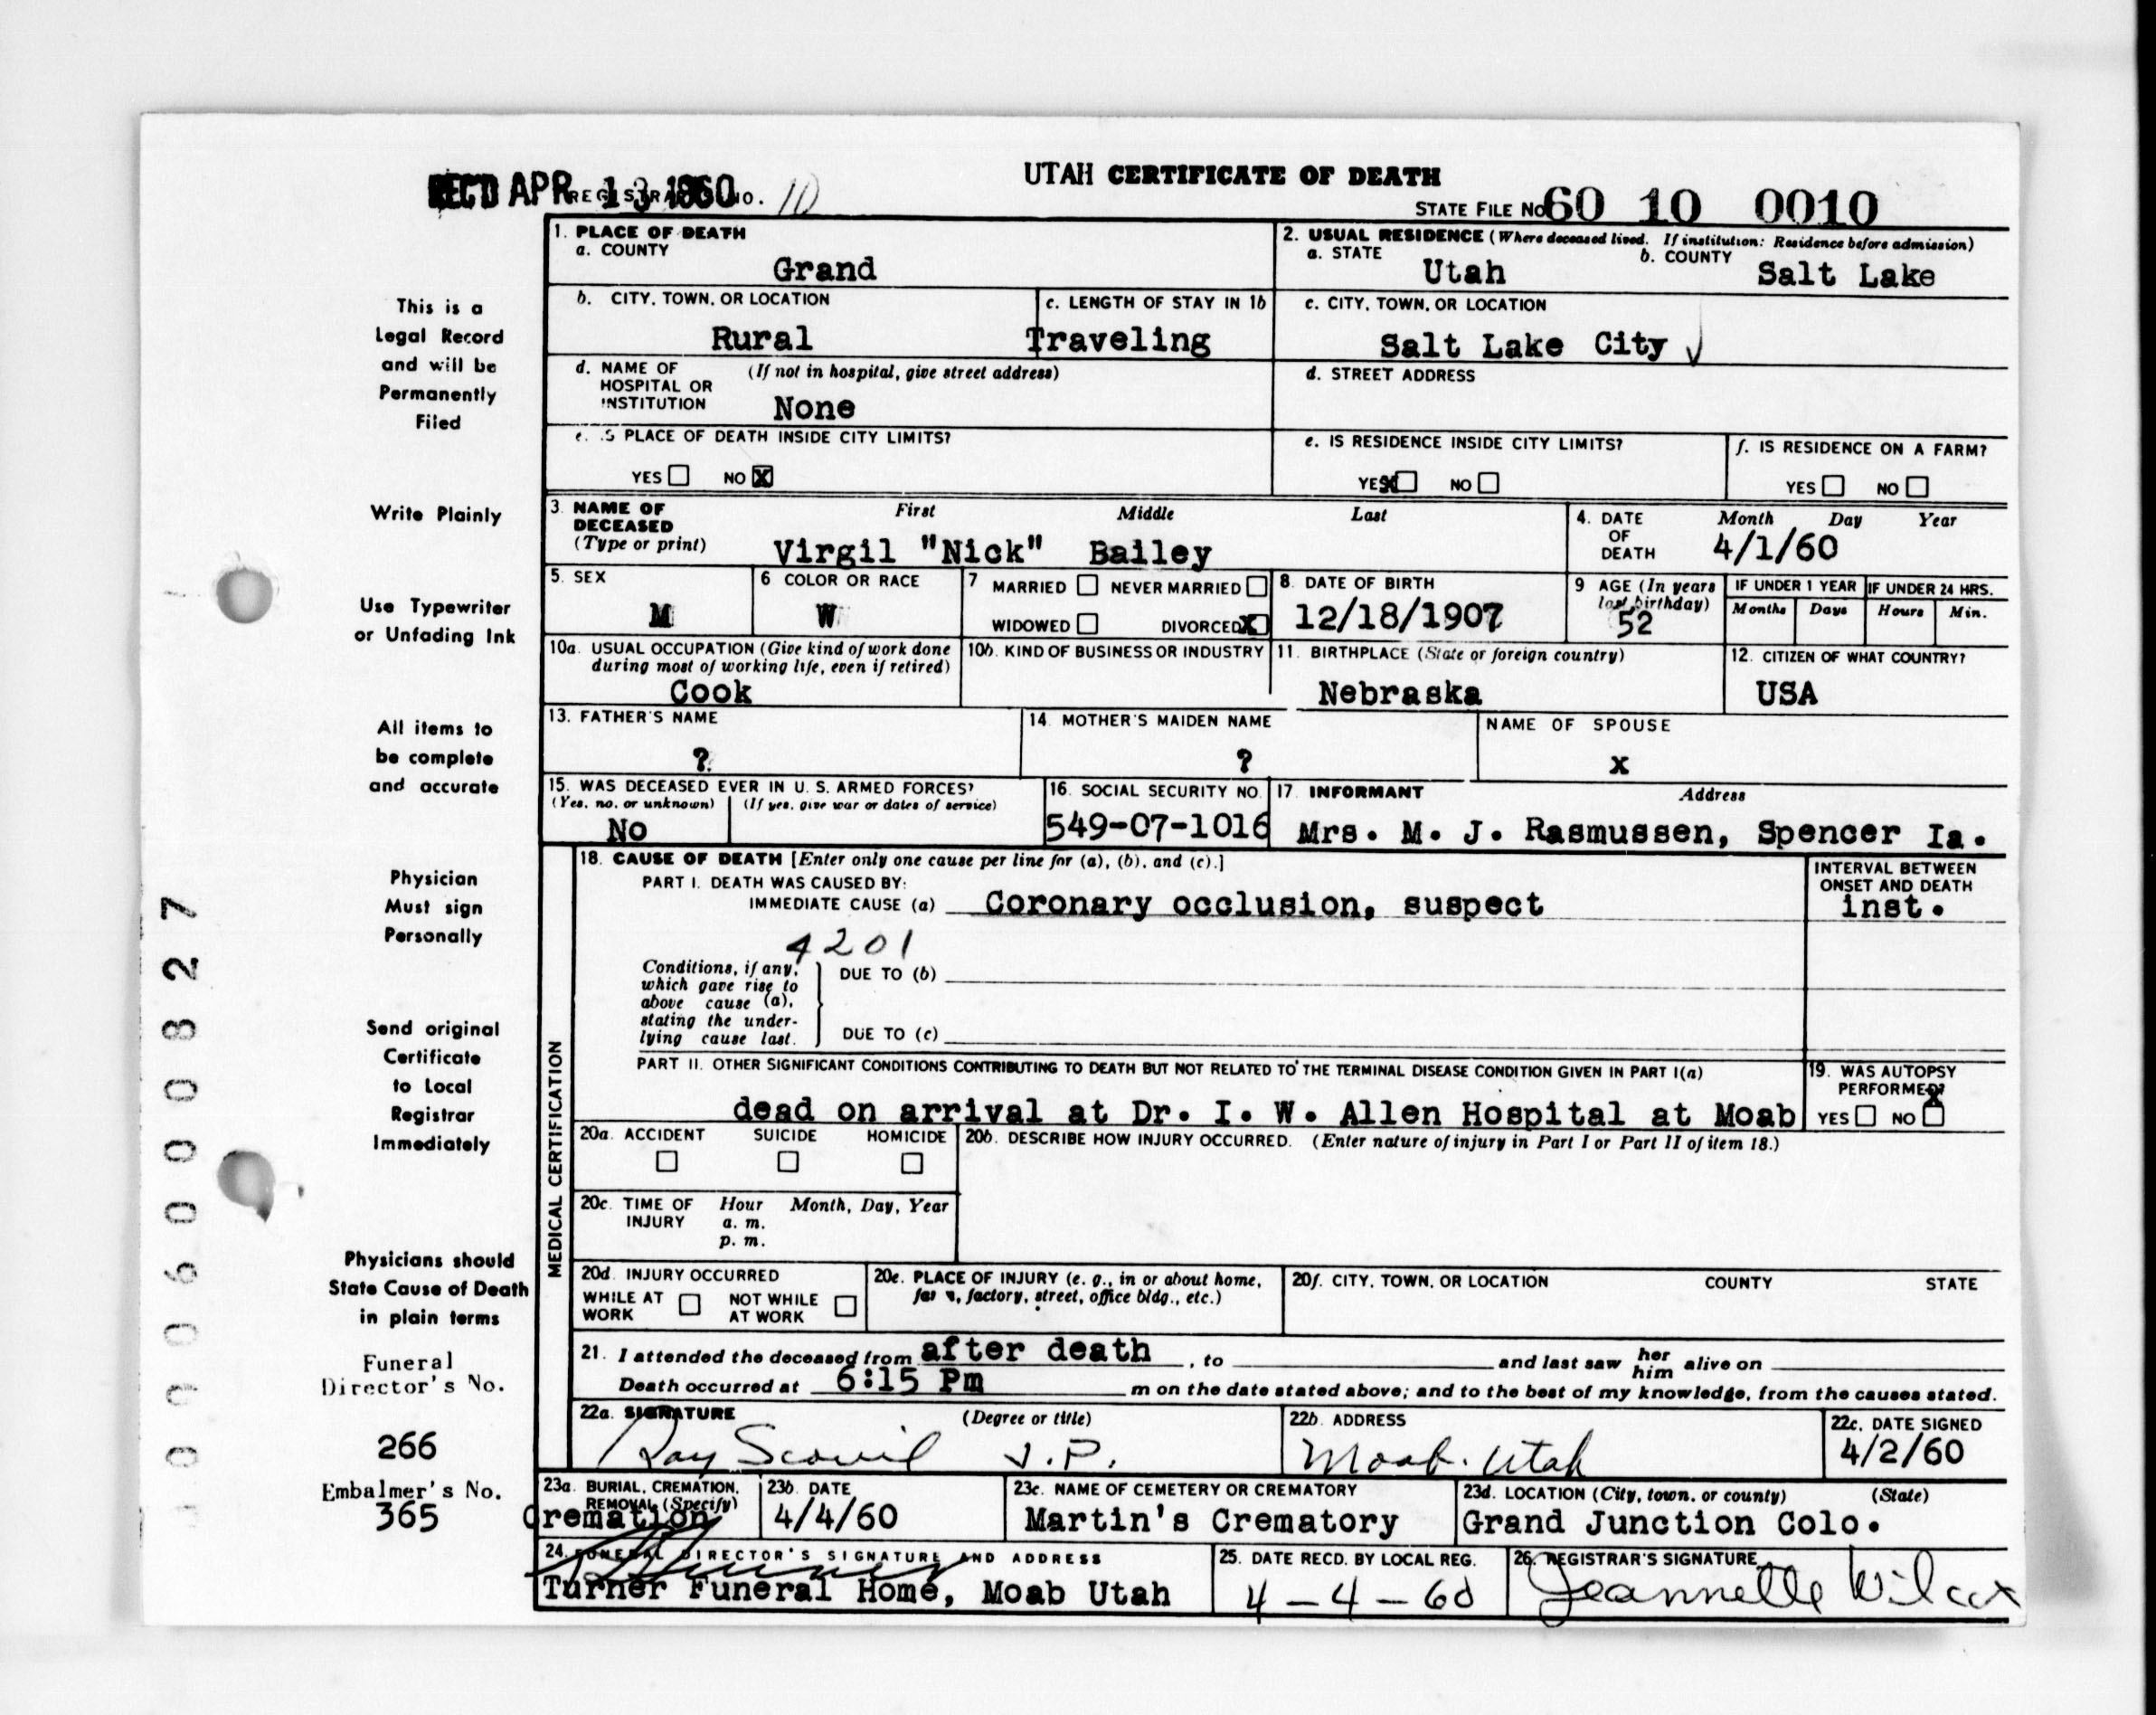 UTAH CERTIFICATE OF DEATH
REC'D APR 13 1960 REGISTRAR'S NO. 10
STATE FILE NO. 60 10 0010
1. PLACE OF DEATH
a. COUNTY
Grand
2. USUAL RESIDENCE (Where deceased lived. If institution: Residence before admission)
a. STATE
Utah
b. COUNTY
Salt Lake
b. CITY, TOWN, OR LOCATION
Rural
c. LENGTH OF STAY IN 1b
Traveling
c. CITY, TOWN, OR LOCATION
Salt Lake City
d. NAME OF HOSPITAL OR INSTITUTION
(If not in hospital, give street address)
None
d. STREET ADDRESS
e. IS PLACE OF DEATH INSIDE CITY LIMITS?
YES NO X
e. IS RESIDENCE INSIDE CITY LIMITS?
YES X NO
f. IS RESIDENCE ON A FARM?
YES NO
3. NAME OF DECEASED
(Type or print)
First Middle Last
Virgil "Nick" Bailey
4. DATE OF DEATH
Month Day Year
4/1/60
5. SEX
M
6 COLOR OR RACE
W
7 MARRIED NEVER MARRIED
WIDOWED DIVORCED X
8. DATE OF BIRTH
12/18/1907
9 AGE (In years last birthday)
52
IF UNDER 1 YEAR
Months Days
IF UNDER 24 HRS.
Hours Min.
10a. USUAL OCCUPATION (Give kind of work done during most of working life, even if retired)
Cook
10b. KIND OF BUSINESS OR INDUSTRY
11. BIRTHPLACE (State or foreign country)
Nebraska
12. CITIZEN OF WHAT COUNTRY?
USA
13. FATHER'S NAME
?
14. MOTHER'S MAIDEN NAME
?
NAME OF SPOUSE
x
15. WAS DECEASED EVER IN U. S. ARMED FORCES?
(Yes, no, or unknown) (If yes, give war or dates of service)
No
16. SOCIAL SECURITY NO.
549-07-1016
17. INFORMANT Address
Mrs. M. J. Rasmussen, Spencer Ia.
MEDICAL CERTIFICATION
18. CAUSE OF DEATH [Enter only one cause per line for (a), (b), and (c).]
PART I. DEATH WAS CAUSED BY:
IMMEDIATE CAUSE (a) Coronary occlusion, suspect
INTERVAL BETWEEN ONSET AND DEATH
inst.
4201
Conditions, if any, which gave rise to above cause (a), stating the underlying cause last.
DUE TO (b)
DUE TO (c)
PART II. OTHER SIGNIFICANT CONDITIONS CONTRIBUTING TO DEATH BUT NOT RELATED TO THE TERMINAL DISEASE CONDITION GIVEN IN PART I(a)
dead on arrival at Dr. I. W. Allen Hospital at Moab
19. WAS AUTOPSY PERFORMED?
YES NO X
20a. ACCIDENT SUICIDE HOMICIDE
20b. DESCRIBE HOW INJURY OCCURRED. (Enter nature of injury in Part I or Part II of item 18.)
20c. TIME OF INJURY
Hour Month, Day, Year
a. m.
p. m.
20d. INJURY OCCURRED
WHILE AT WORK NOT WHILE AT WORK
20e. PLACE OF INJURY (e. g., in or about home, farm, factory, street, office bldg., etc.)
20f. CITY, TOWN, OR LOCATION COUNTY STATE
21. I attended the deceased from after death, to and last saw her him alive on
Death occurred at 6:15 Pm m on the date stated above; and to the best of my knowledge, from the causes stated.
22a. SIGNATURE (Degree or title)
Ray Scovil J.P.
22b. ADDRESS
Moab. Utah
22c. DATE SIGNED
4/2/60
23a. BURIAL, CREMATION, REMOVAL (Specify)
Cremation
23b. DATE
4/4/60
23c. NAME OF CEMETERY OR CREMATORY
Martin's Crematory
23d. LOCATION (City, town, or county) (State)
Grand Junction Colo.
24. FUNERAL DIRECTOR'S SIGNATURE AND ADDRESS
Turner Funeral Home, Moab Utah
25. DATE RECD. BY LOCAL REG.
4-4-60
26. REGISTRAR'S SIGNATURE
Jeannette Wilcox
This is a
Legal Record
and will be
Permanently
Filed
Write Plainly
Use Typewriter
or Unfading Ink
All items to
be complete
and accurate
Physician
Must sign
Personally
Send original
Certificate
to Local
Registrar
Immediately
Physicians should
State Cause of Death
in plain terms
Funeral
Director's No.
266
Embalmer's No.
365
00006000827